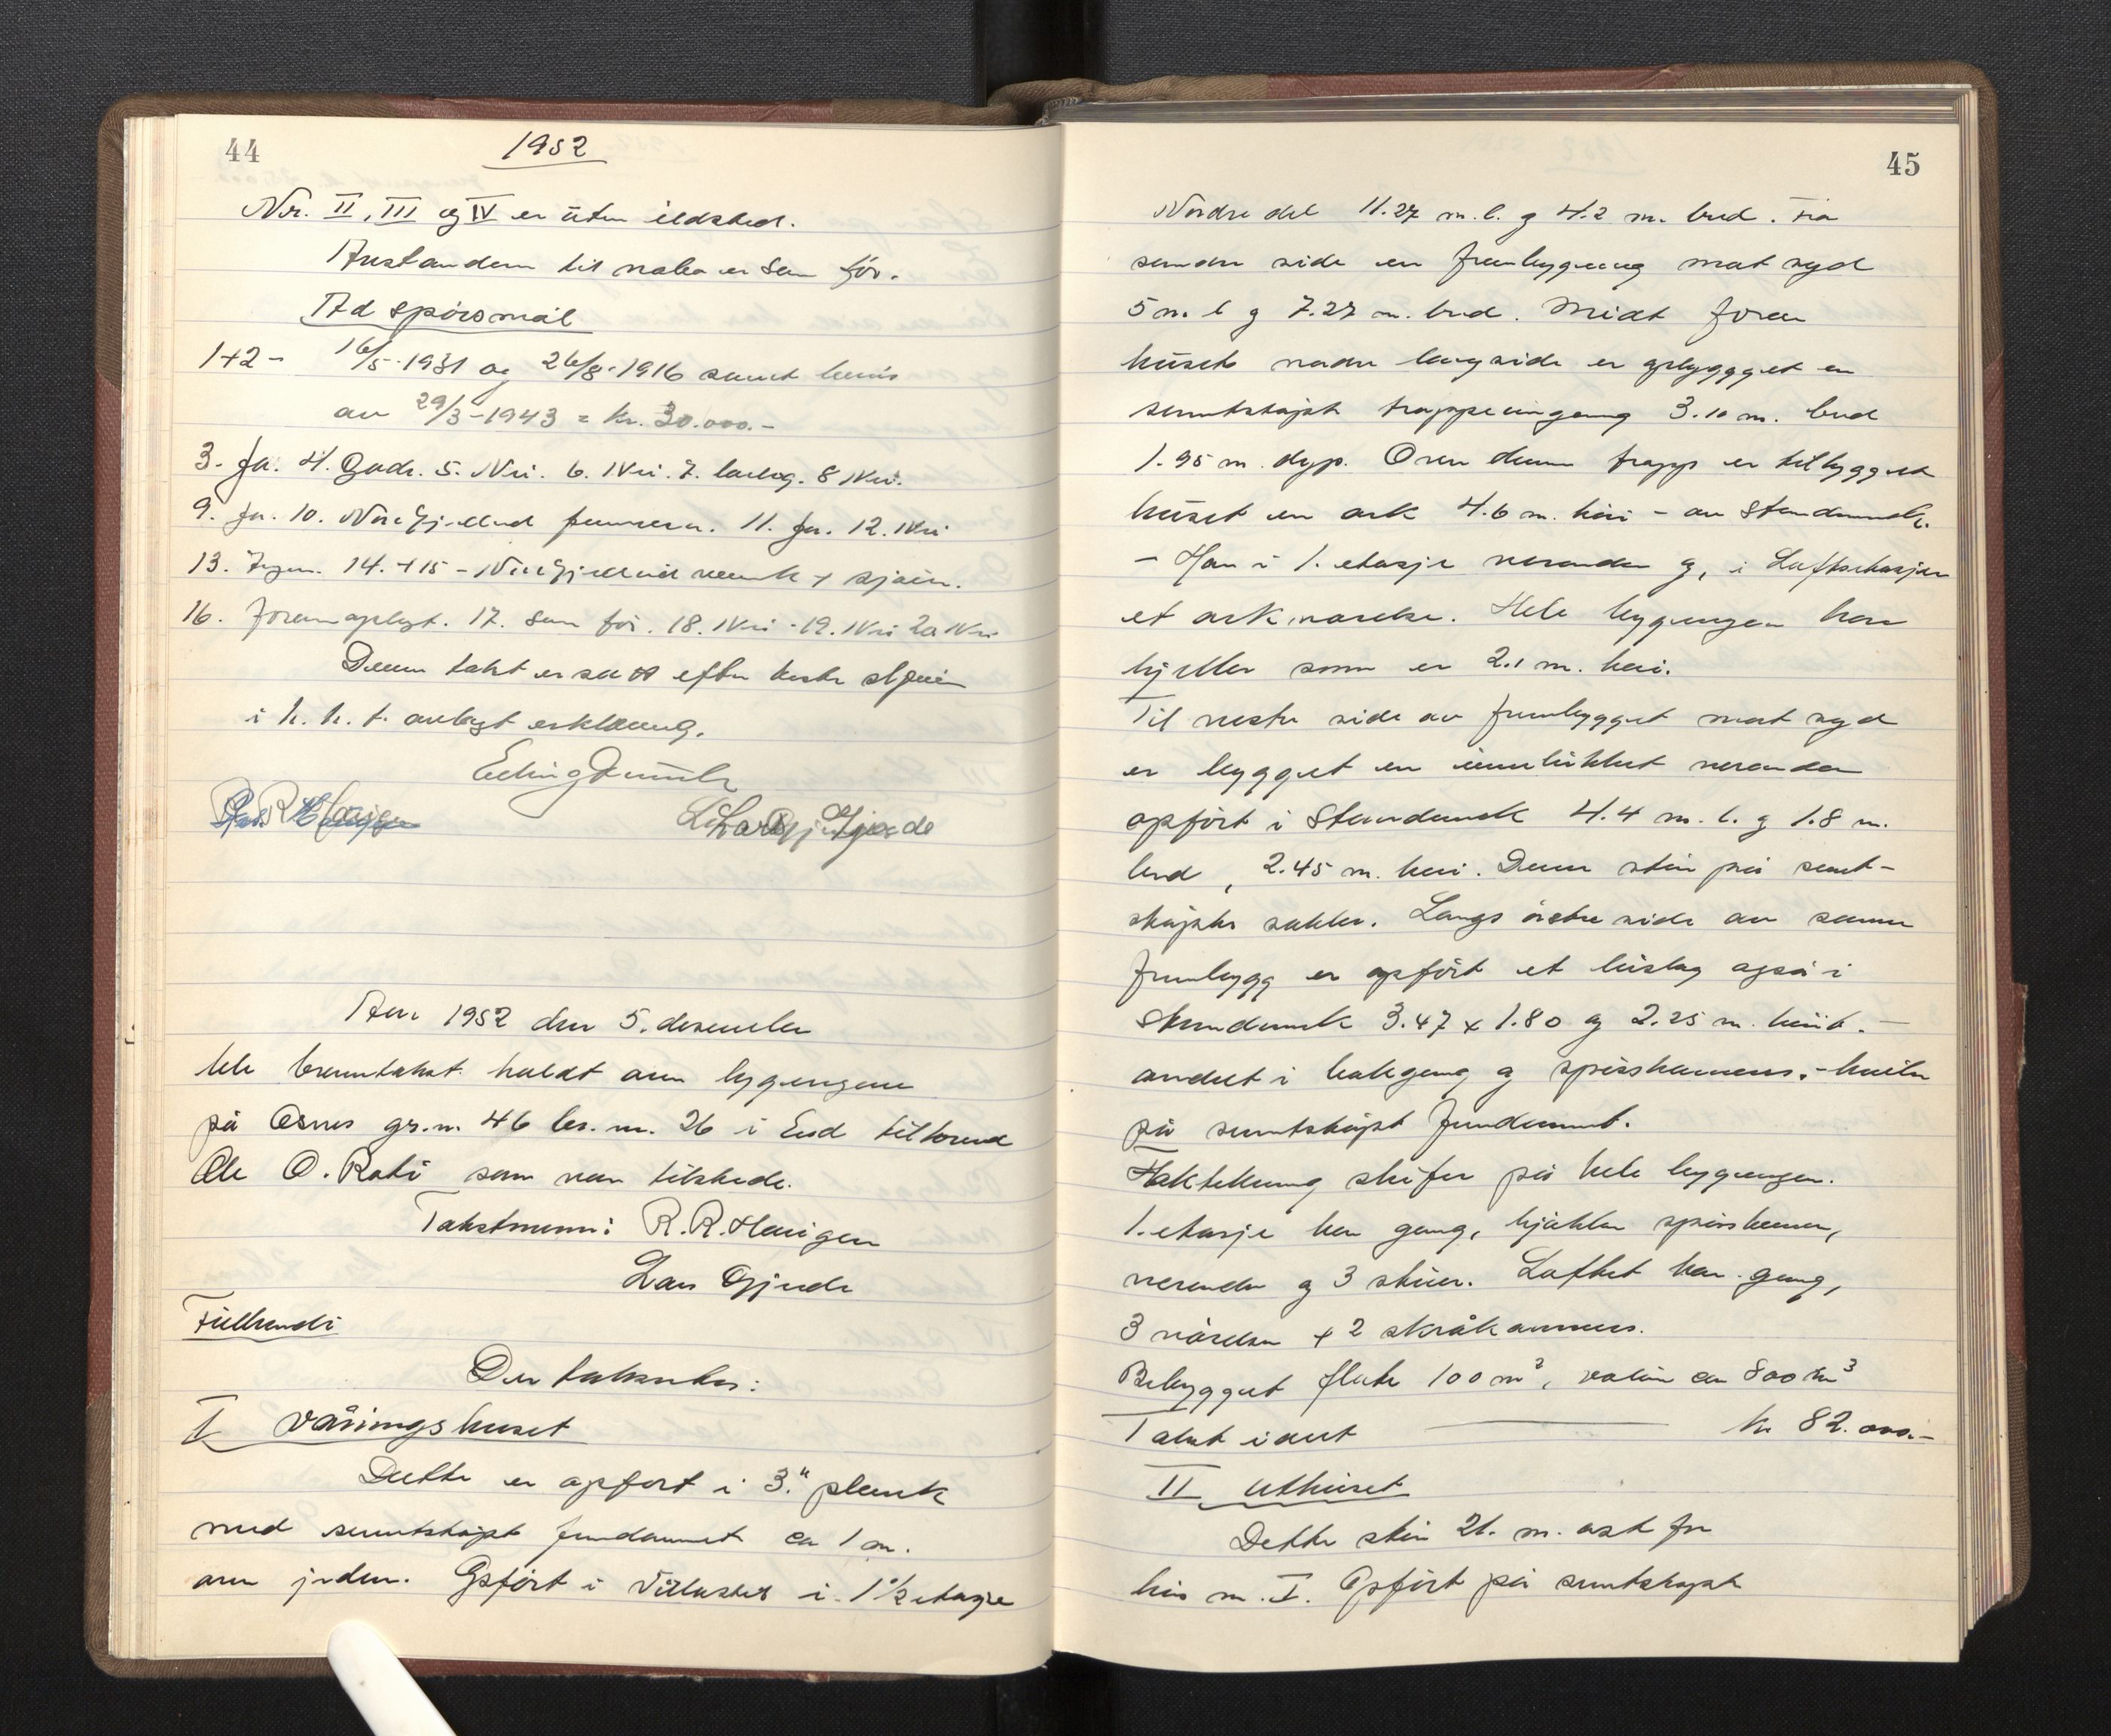 44
1952
Nr. II, III og IV er uten ildsted.
Avstanden til nabo er som før.
Ad spörsmål
1+2- 16/5-1931 og 26/8-1916 samt
av 29/3-1943 = kr. 30.000.-
3. Ja. 4. Gode. 5. Nei. 6. Nei. 7. 8 Nei.
9. Ja. 10. 11. Ja. 12. Nei
13. Ingen. 14. + 15 -
16. Foranoplyst. 17. Som før. 18. Nei - 19. Nei 20 Nei
Denne takst er satt efter beste skjönn
i h. h. t. avlagt erklæring.
R. R. Haugen Lars Gjerde
1952 den 5. desember
ble branntakst holdt over bygningene
på Osnes gr.nr. 46 br. nr. 26 i Eid tilhörende
Ole O. Roti som var tilstede.
Takstmenn: R. R. Haugen
Lars Gjerde
Der takseres:
I Våningshuset
Dette er opført i 3" plank
med sementstøpt fundament ca 1 m.
over jorden. Opfört i i 1 1/2 etasje
45
Nordre del 11.27 m. l. og 4.2 m. bred. Fra
söndre side en frembygning mot syd
5 m. l og 7.27 m. bred. Midt foran
husets nordre langside er opbyggget en
sementstöpt trappeingang 3.10 m. bred
1.95 m. dyp. Over denne trapp er tilbygget
huset en ark 4.6 m. höi - av Stenderverk.
- Har i 1. etasje veranda og, i Loftsetasjen
et arkværelse. Hele bygningen har
kjeller som er 2.1 m. höi.
Til vestre side av frembygget mot syd
er bygget en innelukket veranda
opfört i Stenderverk 4.4 m. l. og 1.8 m.
bred, 2.45 m. höi. Denne står på sement-
stöpte sokkler. Langs östre side av samme
frembygg er opfört et bislag også i
Stenderverk 3.47 x 1.80 og 2.25 m. höit. -
innredet i bakgang og spisskammers. - hviler
på sementstöpt fundament.
Taktekning skifer på hele bygningen.
1. etasje har gang, kjökken spiskammer,
veranda og 3 stuer. Loftet har gang,
3 værelser + 2 skråkammers.
Bebygget flate 100 m², volum ca 800 m³
Takst i alt kr 82.000.-
II Uthuset
Dette står 21. m. öst for
hus nr. I. Opfört på sementstöpt